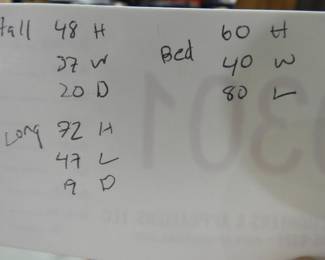 Hall 48 H
37 W
20 D
Long 72 H
47 L
9 D
Bed 60 H
40 W
80 L